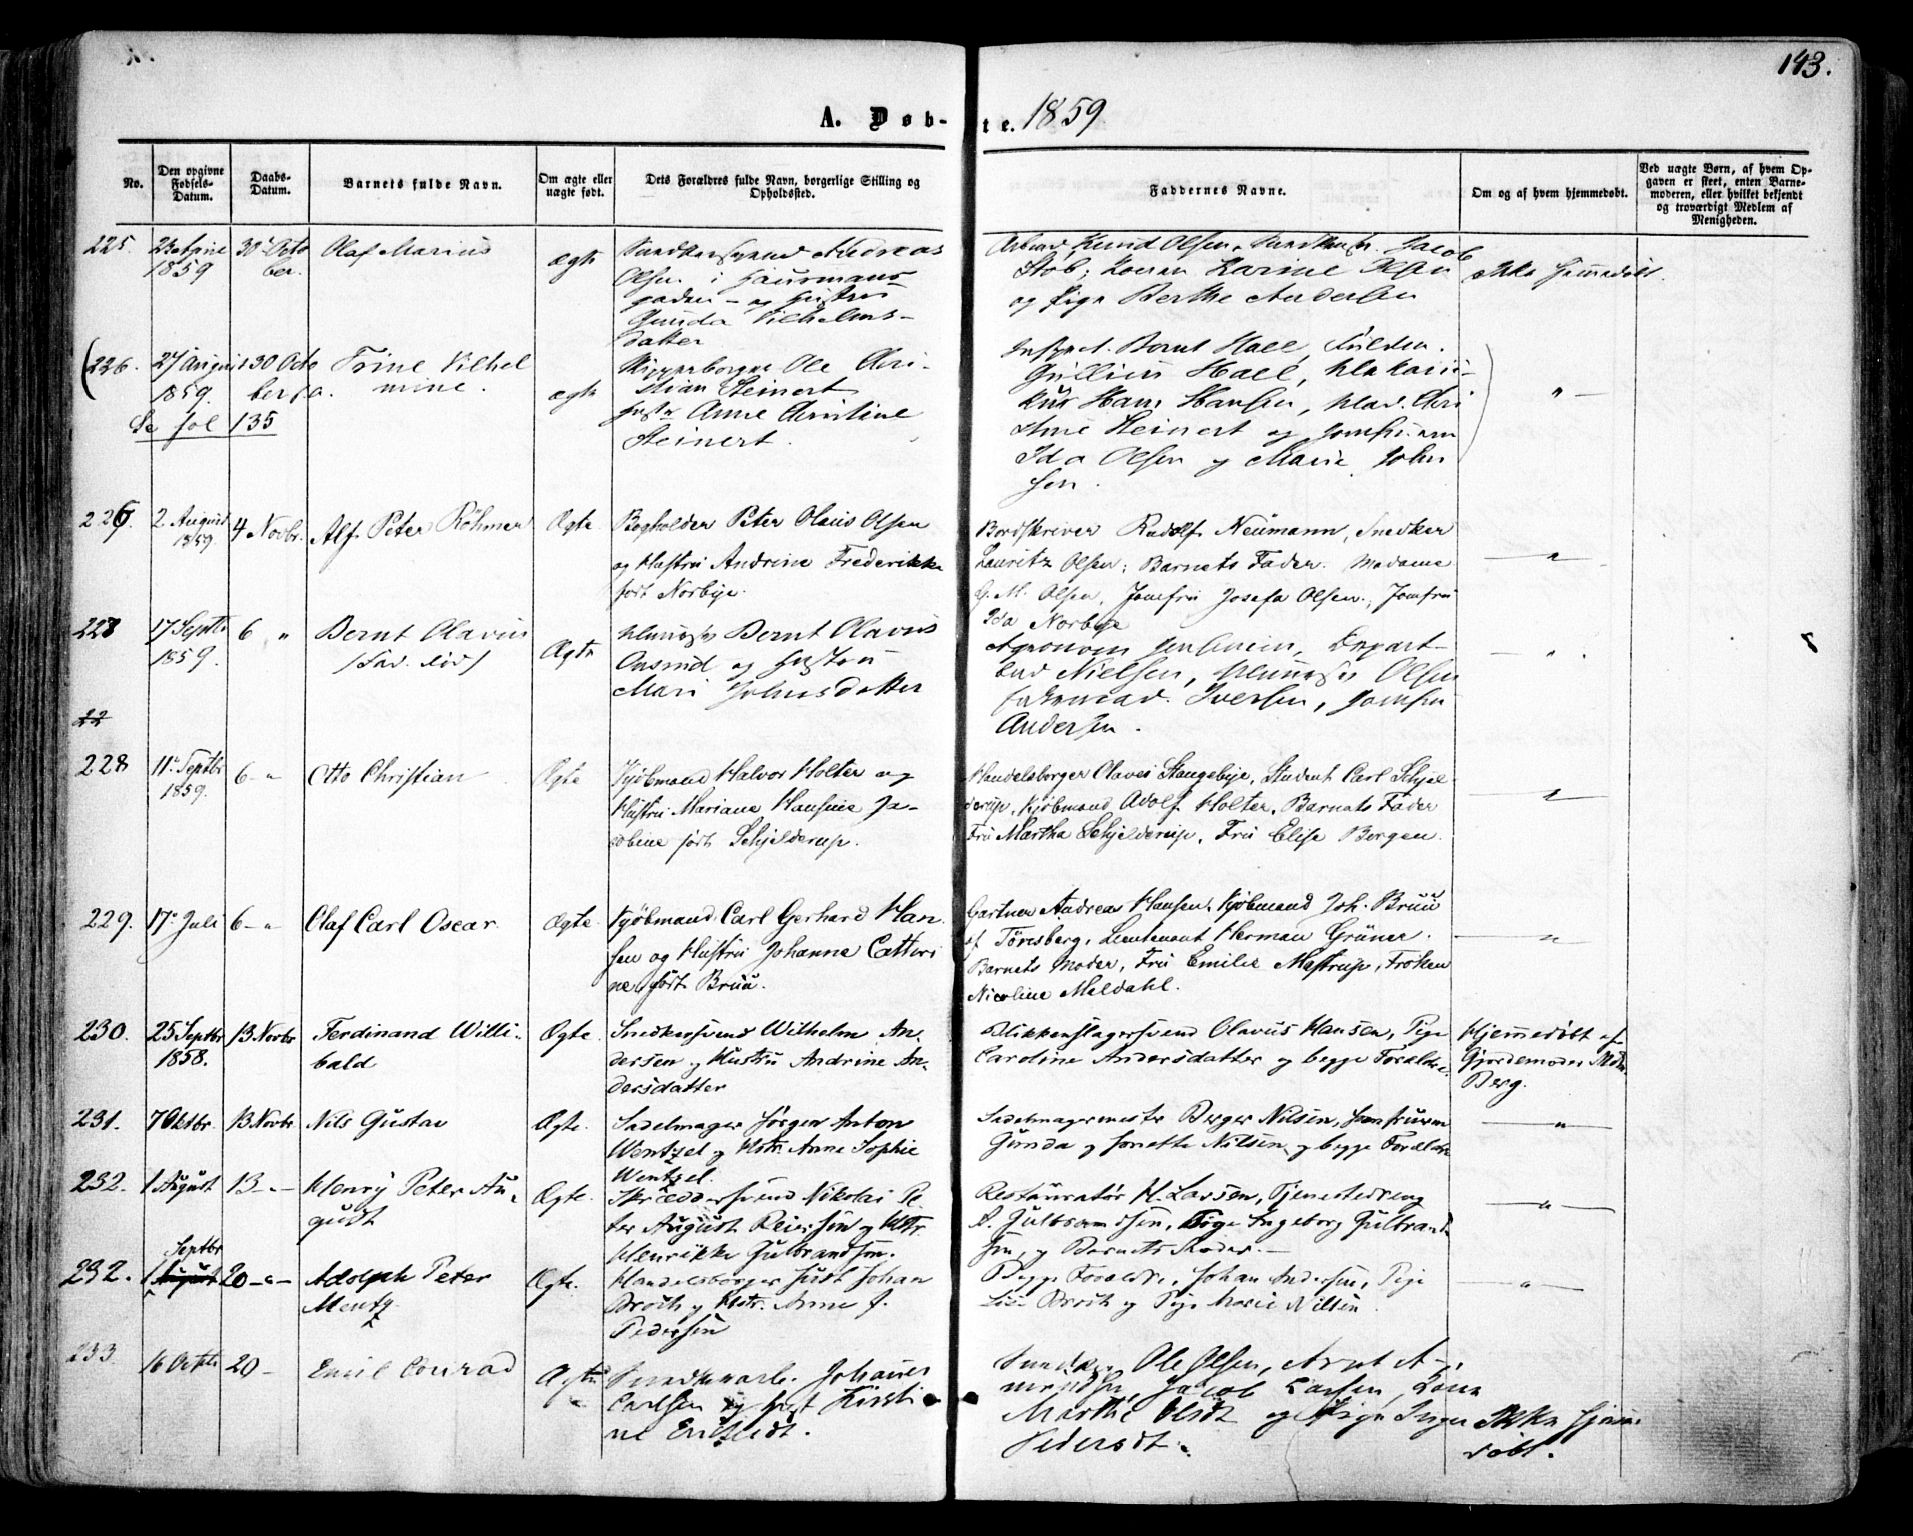 143.
A. Døb-
te. 1859
No.
Den opgivne
Fødsels-
Datum.
Daabs-
Datum.
Barnets fulde Navn.
Om ægte eller
uægte født.
Dets Forældres fulde Navn, borgerlige Stilling og
Opholdssted.
Faddernes Navne.
Om og af hvem hjemmedøbt.
Ved uægte Børn, af hvem Op-
gaven er skeet, enten Barne-
moderen, eller hvilket bekjendt
og troværdigt Medlem af
Menigheden.
225.
1859
30 Octo
ber.
Olaf Marius
ægte
Andreas
Olsen i
gaden – og Hustru
Gunda Vilhelms-
datter
Knud Olsen, Jacob
Karine Olsen
og Pige Berthe Andersen
ikke hjemmedøbt.
226.
27 August
1859.
30 Octo
ber
Se fol 135
Trine Vilhel
mine.
ægte
Skipperborger Ole Chri-
stian Steinert
Hustr Anne Christine
Steinert.
Bernt Hall,
Hall,
Hans Hansen, Mad. Chri
stine Steinert og Jomfruerne
Ida Olsen og Marie John
sen.
" –
226.
2. August
1859.
4 Novbr.
Alf Peter Röhmer
Ægte
Bogholder Peter Olaus Olsen
og Hustru Andrine Frederikke
født Norbye.
Bordskriver Rudolf Neumann, Snedker
Lauritz Olsen; Barnets Fader. Madame
G. M. Olsen, Jomfru Josefa Olsen, Jomfru
Ida Norbye
– " –
228
17 Septbr
1859.
6 "
Bernt Olavus
Ægte
Bernt Olavus
og Hustru
Mari Johnsdatter
Agronom
Nielsen, Olsen
Iversen, Jomfru
Andersen.
– " .
22
228
11 Septbr
1859.
6 – "
Otto Christian
Ægte
Kjöbmand Halvor Holter og
Hustru Mariane Hansine Ja-
cobine født Schjelderup.
Handelsborger Olaves Stangebye, Student Carl Schjel-
derup, Kjøbmand Adolf Holter, Barnets Fader
Fru Martha Schjelderup, Fru Elise Borgen.
– " –
229.
17 Juli
6 – "
Olaf Carl Oscar
Ægte.
Kjöbmand Carl Gerhard Han
sen og Hustru Johanne Cathri
ne født Bruu.
Gartner Andreas Hansen, Kjöbmand Joh. Bruu
af Tönsberg, Lieutenant Herman Grüner.
Barnets Moder, Fru Emilie Mestrup, Frøken
Nicoline Meldahl.
– " –
230.
25 Septbr
1858.
13 Novbr
Ferdinand Willi-
bald
Ægte.
Snedkersvend Wilhelm An-
dersen og Hustru Andrine An-
dersdatter
Blikkenslagersvend Olavus Hansen, Pige
Caroline Andersdatter og begge Forældre.
Hjemmedøbt af
Gjordemoder Mdm
Berg.
231.
7 Oktbr.
13 Novbr
Nils Gustav
Ægte.
Sadelmager Jørgen Anton
Wentzel og Hstr. Anne Sophie
Wentzel.
Sadelmagermester Berger Nilsen, Jomfruerne
Gunda og Janette Nilsen og begge Forældre
– " –
232.
1 August
13 – "
Henry Peter Au-
gust
Ægte.
Skræddersvend Nikolai Pe-
ter August Reiersen og Hstr.
Henrikke Gulbrandsen.
Restauratør H. Larsen, Tjenestedreng
S. Gulbrandsen, Pige Ingeborg Gulbrand-
sen, og Barnets Moder. –
– " –
232.
Septbr
1 August
20 – " –
Adolph Peter
Mentz
Ægte.
Handelsborger Just Johan
Broch og Hstr. Anne J.
Pedersen
Begge Forældre, Johan Andersen, Pige
Broch og Pige Marie Nilsen.
– " –
233
16 Octbr
20 –
Emil Conrad
Ægte
Johannes
Carlsen og Hust Kirsti
ne
Ole Olsen, Arnt A-
Jacob Larsen, Kone
Marthe Olsdt og Pige Inger
Pedersdt.
Ikke hjemme
døbt.